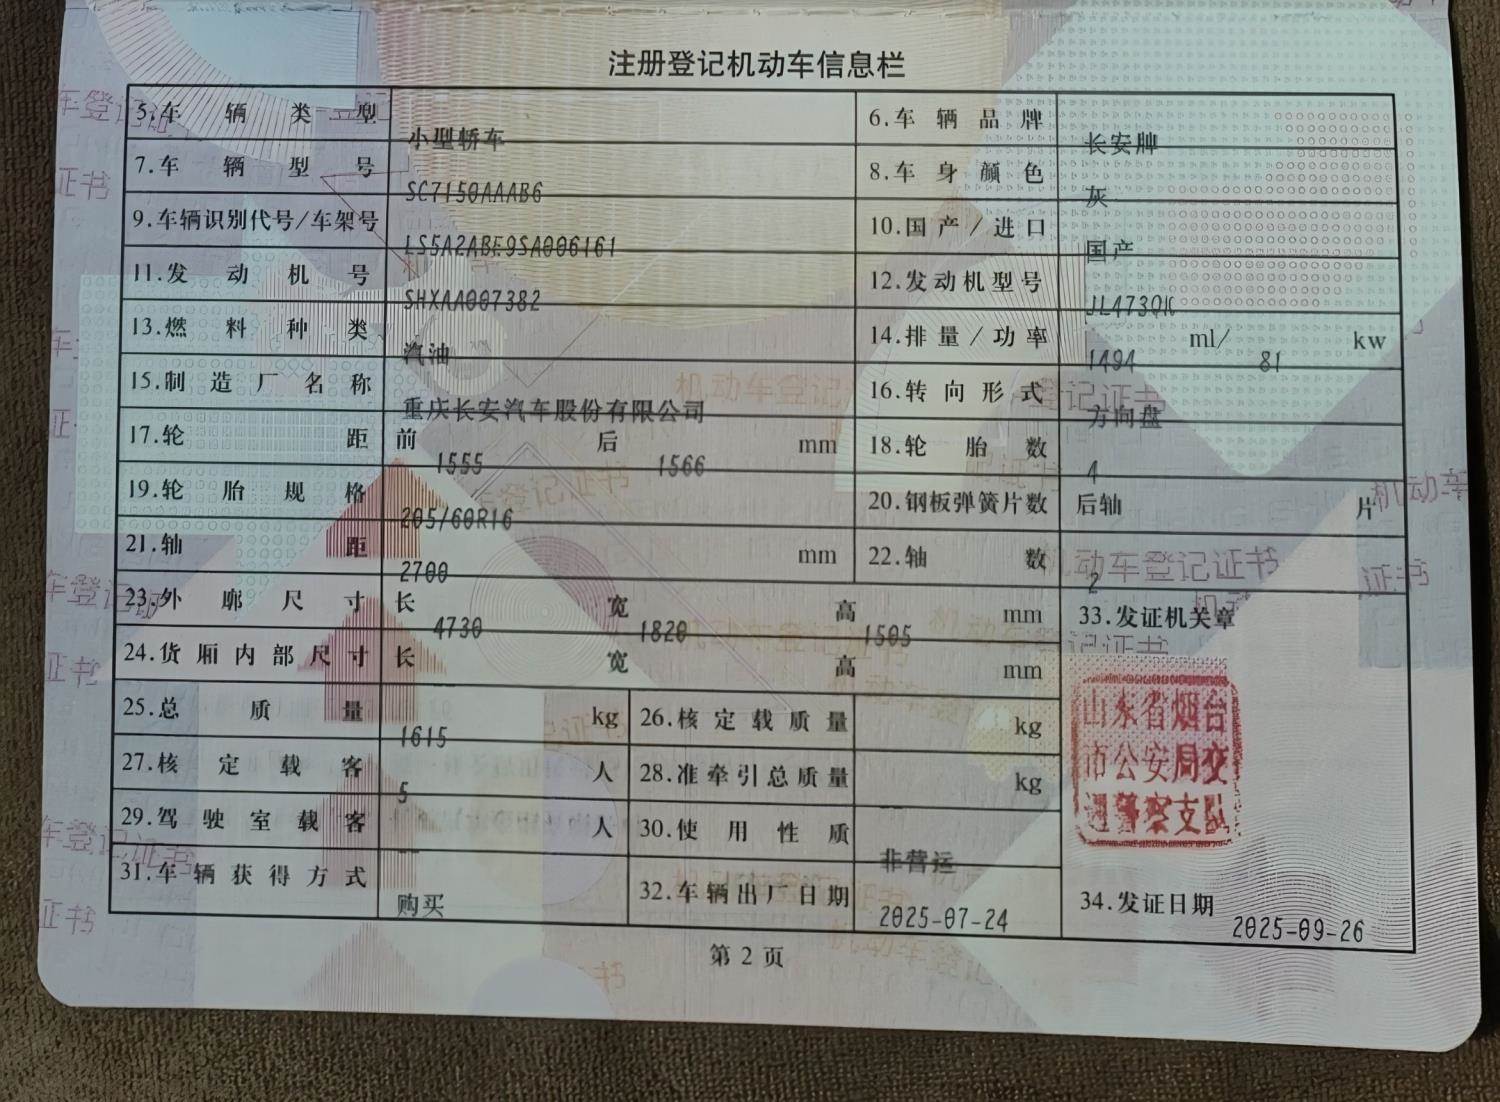 注册登记机动车信息栏
5.车辆类型 小型轿车 6.车辆品牌 长安牌
7.车辆型号 SC7150AAAB6 8.车身颜色 灰
9.车辆识别代号/车架号 LS5A2ABE9SA006161 10.国产/进口 国产
11.发动机号 SHXAA007382 12.发动机型号 JL473QK
13.燃料种类 汽油 14.排量/功率 1494 ml/ 81 kw
15.制造厂名称 重庆长安汽车股份有限公司 16.转向形式 方向盘
17.轮距 前 1555 后 1566 mm 18.轮胎数 4
19.轮胎规格 205/60R16 20.钢板弹簧片数 后轴 片
21.轴距 2700 mm 22.轴数 2
23.外廓尺寸 长 4730 宽 1820 高 1505 mm 33.发证机关章
24.货厢内部尺寸 长 宽 高 mm
25.总质量 1615 kg 26.核定载质量 kg
27.核定载客 5 人 28.准牵引总质量 -- kg
29.驾驶室载客 -- 人 30.使用性质 非营运
31.车辆获得方式 购买 32.车辆出厂日期 2025-07-24 34.发证日期 2025-09-26
山东省烟台
市公安局交
通警察支队
第2页